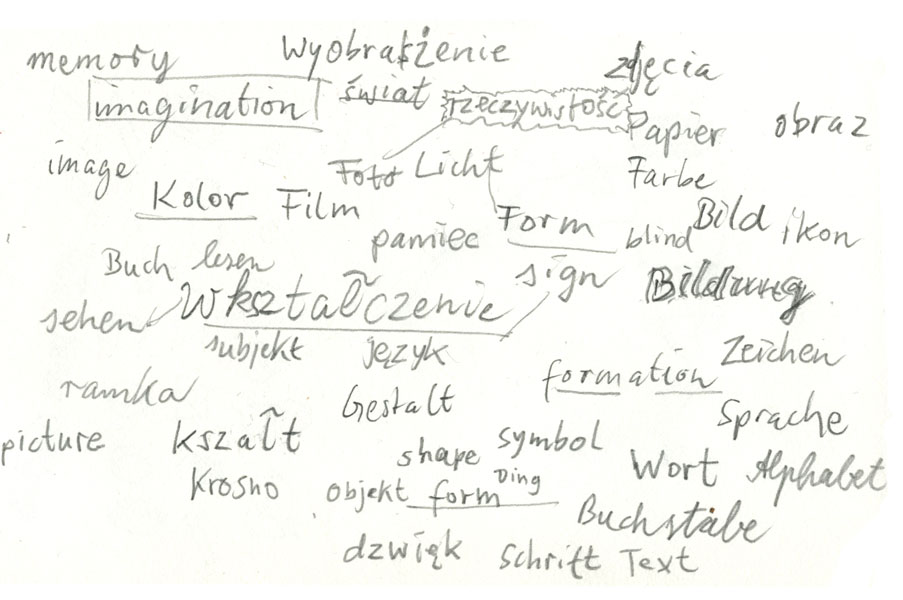 memory wyobrażenie zdjęcia
imagination świat rzeczywistość Papier obraz
image Foto Licht Farbe
Kolor Film Form blind Bild ikon
Buch lesen pamiec sign Bildung
sehen Wkształczenie
subjekt język formation Zeichen
ramka Gestalt Sprache
picture kształt shape symbol
Krosno objekt form Ding Wort Alphabet
Buchstabe
dzwięk Schrift Text